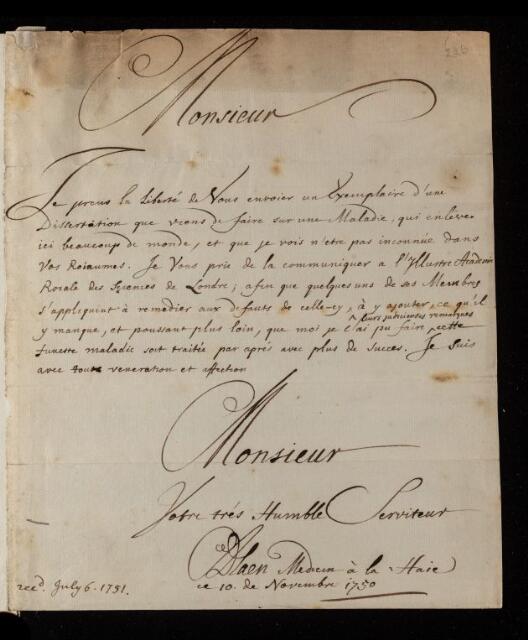 226
Monsieur
Je prens la Liberté de Vous envoier un Exemplaire d'une
Dissertation que viens de faire sur une Maladie, qui enleve
ici beaucoup de monde, et que je vois n'etre pas inconnüe dans
Vos Roiaumes. Je Vous prie de la communiquer a l'Illustre Academie
Roiale des Sciences de Londre; afin que quelques uns de ses Membres
s'appliquent à remedier aux defauts de celle-cy, à y ajouter, ce qu'il
y manque, et poussant plus loin, que moi je l'ai pu faire, ^ leurs judicieuses remarques cette
funeste maladie soit traitée par aprés avec plus de succes. Je suis
avec toute veneration et affection
Monsieur
Votre trés Humble Serviteur
DHaen Medecin à la Haie
ce 10. de Novembre 1750
recd. July 6. 1751.